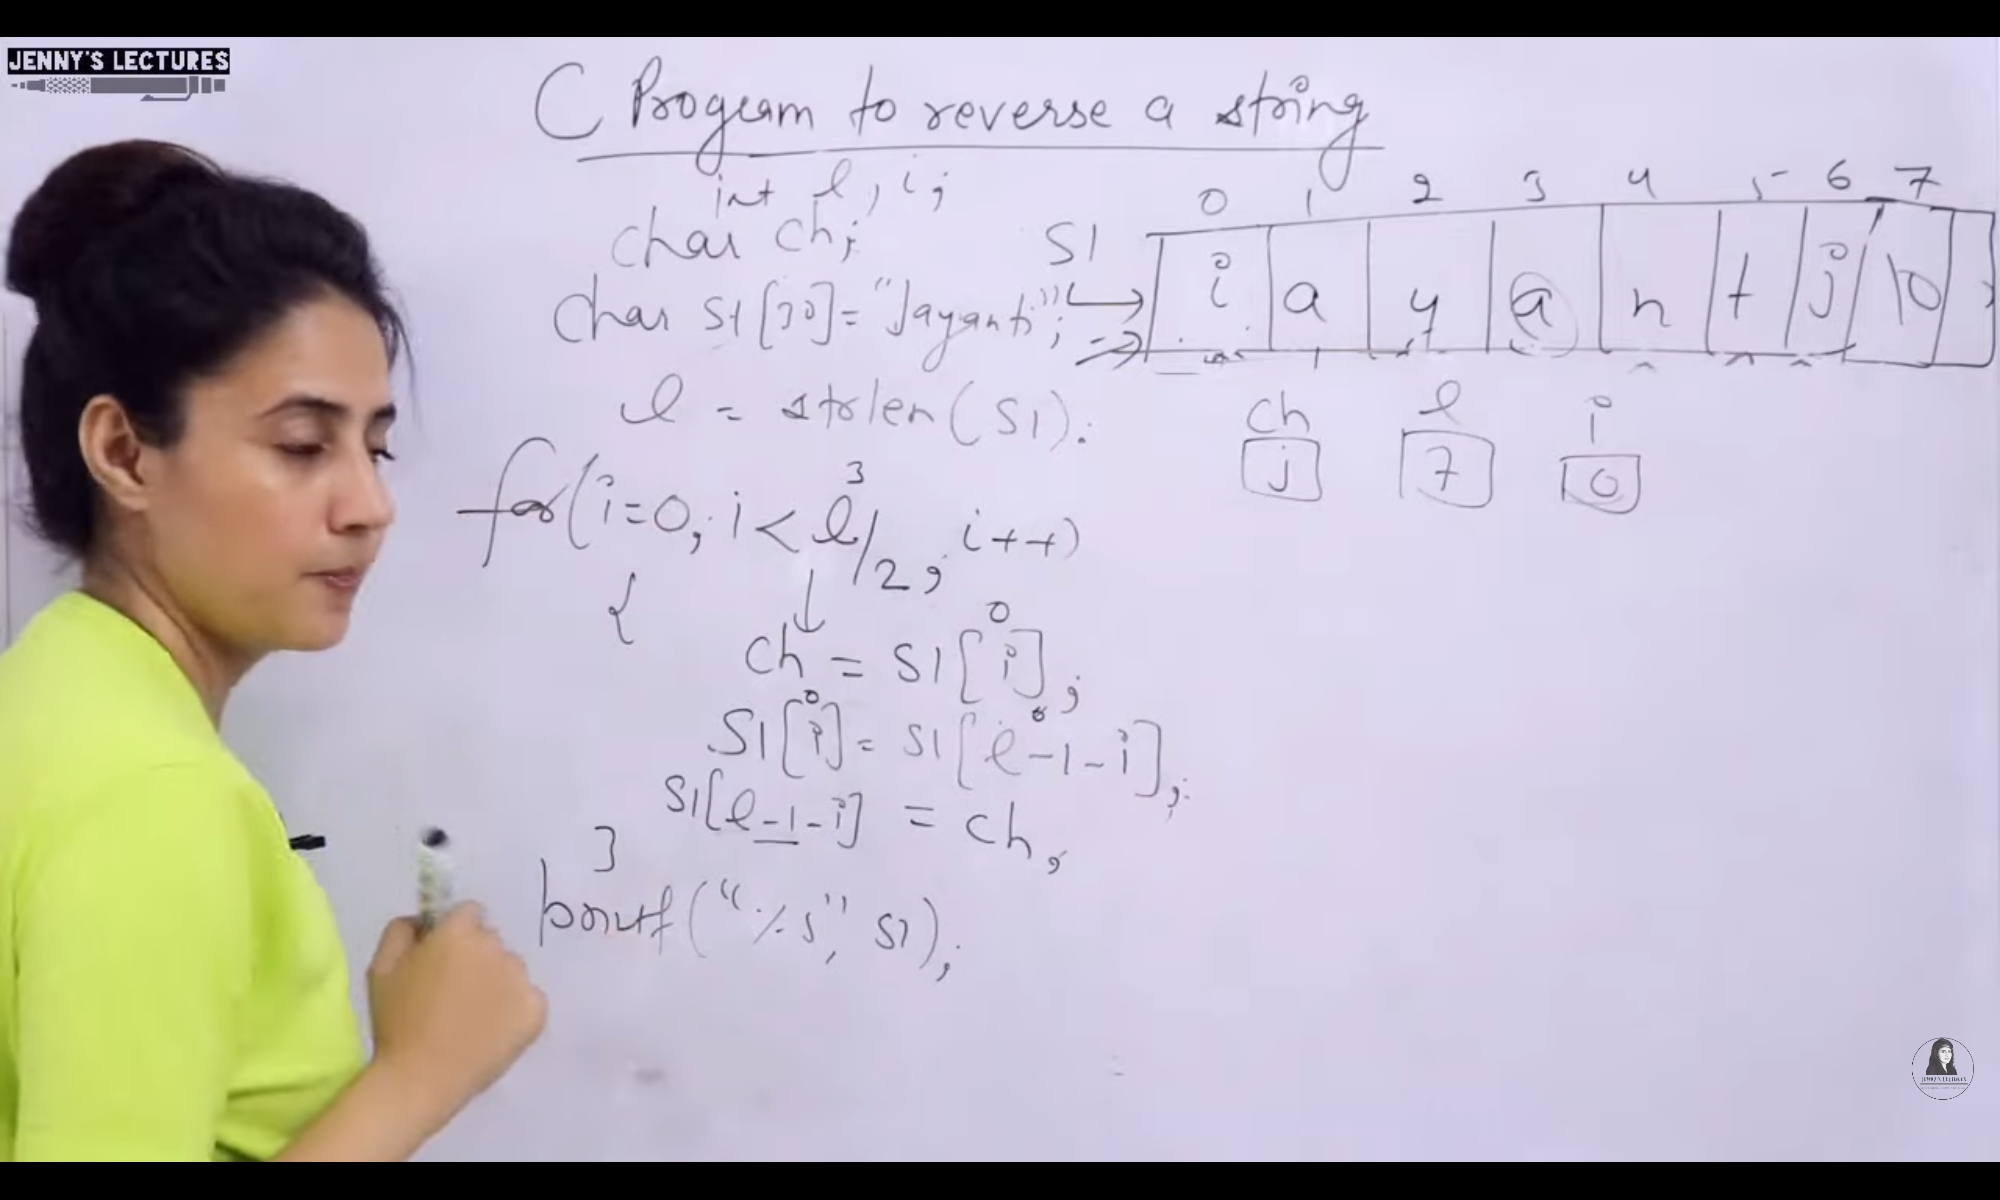 JENNY'S LECTURES
C Program to reverse a string
int l, i;
char ch;
char S1[30]="Jayanti";
l = strlen(S1);
for(i=0; i<l/2; i++)
3
{
ch = S1[i];
0
S1[i]= S1[l-1-i];
0 6
S1[l-1-i] = ch;
}
printf("%s", S1);
0 1 2 3 4 5 6 7
S1
i a y a n t j \0
ch l i
j 7 0